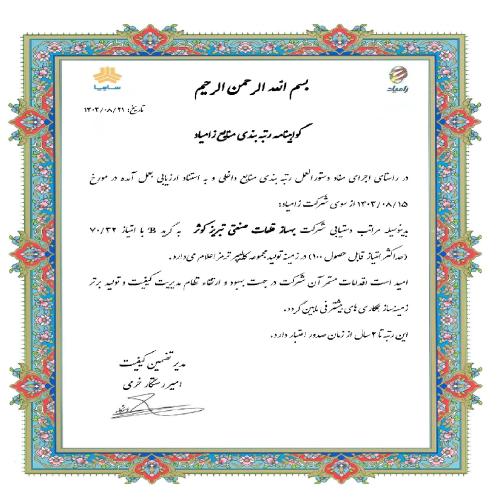 بسم الله الرحمن الرحیم
سایپا
زامیاد
تاریخ: ۱۴۰۳/۰۸/۲۱
گواهینامه رتبه بندی منابع زامیاد
در راستای اجرای مفاد دستورالعمل رتبه بندی منابع داخلی و به استناد ارزیابی بعمل آمده در مورخ
۱۴۰۳/۰۸/۱۵ از سوی شرکت زامیاد:
بدینوسیله مراتب دستیابی شرکت بهساز قطعات صنعتی تبریز کوثر به گرید B با امتیاز ۷۰/۳۲
(حداکثر امتیاز قابل حصول ۱۰۰) در زمینه تولید مجموعه کالیپر ترمز اعلام می‌دارد.
امید است اقدامات مثمر آن شرکت در جهت بهبود و ارتقاء نظام مدیریت کیفیت و تولید برتر
زمینه‌ساز همکاری های بیشتر فی مابین گردد.
این رتبه تا ۲ سال از زمان صدور اعتبار دارد.
مدیر تضمین کیفیت
امیر رستگار خرمی